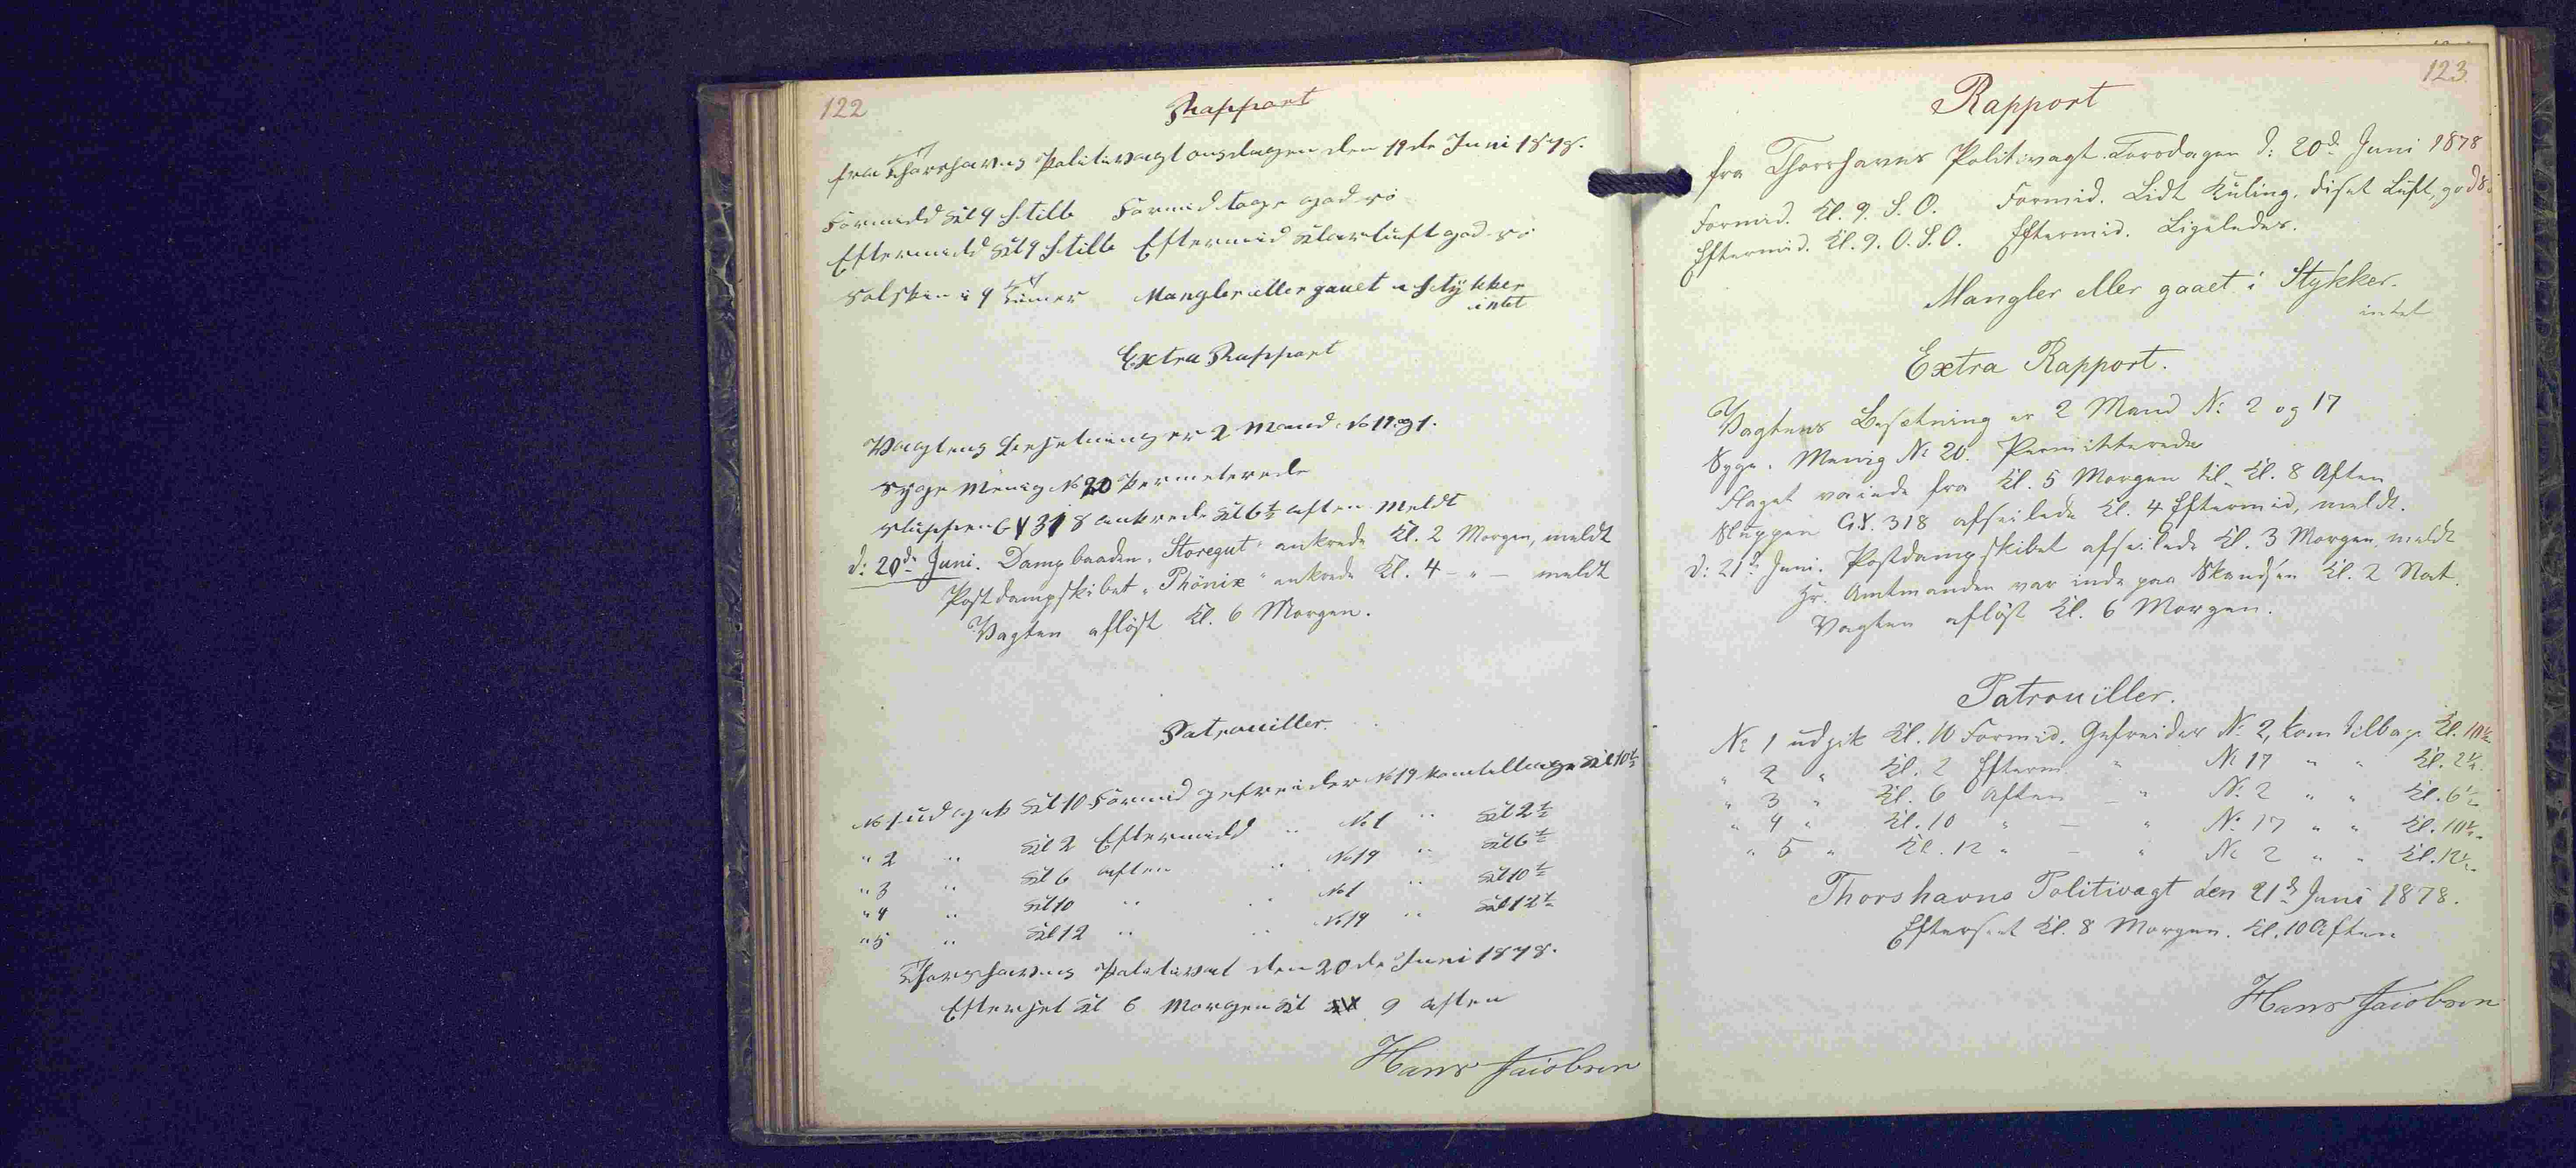 122
Rapport
fra Thorshavns Politivagt onsdagen den 19de Juni 1878.
Formidd Kl 9 Stille Formiddage god sö
Eftermidd Kl 9 Stille Eftermid klarluft god sö
Solskin i 9 Timer Mangler eller gaaet i Stykker
intet
Extra Rapport
Vagtens Besetning er 2 Mand No 19 og 1.
Syge Menig No 20 Permeterede
Sluppen GV 318 ankrede Kl 6½ aften meldt
d: 20de Juni. Dampbaaden „Storegut" ankrede Kl. 2 Morgen, meldt
Postdampskibet „Phönix" ankrede Kl. 4 – " – meldt
Vagten aflöst Kl. 6 Morgen.
Patrouiller.
No 1 udgik Kl 10 Formid gefreider No 19 kom tilbage Kl 10½
" 2 " Kl 2 Eftermidd " No 1 " Kl 2½
" 3 " Kl 6 aften " No 19 " Kl 6½
" 4 " Kl 10 " " No 1 " Kl 10½
" 5 " Kl 12 " " No 19 " Kl 12½
Thorshavns Politivat den 20de Juni 1878.
Efterset Kl 6 Morgen Kl 9 aften
Hans Jacobsen
123
Rapport
fra Thorshavns Politivagt Torsdagen d: 20de Juni 1878
Formid. Kl. 9. S. O. Formid. Lidt Kuling, diset Luft, god S.
Eftermid. Kl. 9. O. S. O. Eftermid. Ligeledes.
Mangler eller gaaet i Stykker.
intet
Extra Rapport.
Vagtens Besætning er 2 Mand No 2 og 17
Syge. Menig No 20. Permitterede
Flaget vaiede fra Kl. 5 Morgen til Kl. 8 Aften
Sluppen GV. 318 afseilede Kl. 4 Eftermid, meldt.
d: 21de Juni. Postdampskibet afseilede Kl. 3 Morgen, meldt
Hr. Amtmanden var inde paa Skandsen Kl. 2 Nat.
Vagten aflöst Kl. 6 Morgen.
Patrouiller.
No 1 udgik Kl. 10 Formid. Gefreider No 2, kom tilbage Kl. 10½
" 2 " Kl. 2 Efterm " No 17 " " Kl. 2½.
" 3 " Kl. 6 Aften – " No 2 " " Kl. 6½
" 4 " Kl. 10 " – " No 17 " " Kl. 10½.
" 5 " Kl. 12 " – " No 2 " " Kl. 12½.
Thorshavns Politivagt den 21de Juni 1878.
Efterseet Kl. 8 Morgen. Kl. 10 Aften
Hans Jacobsen